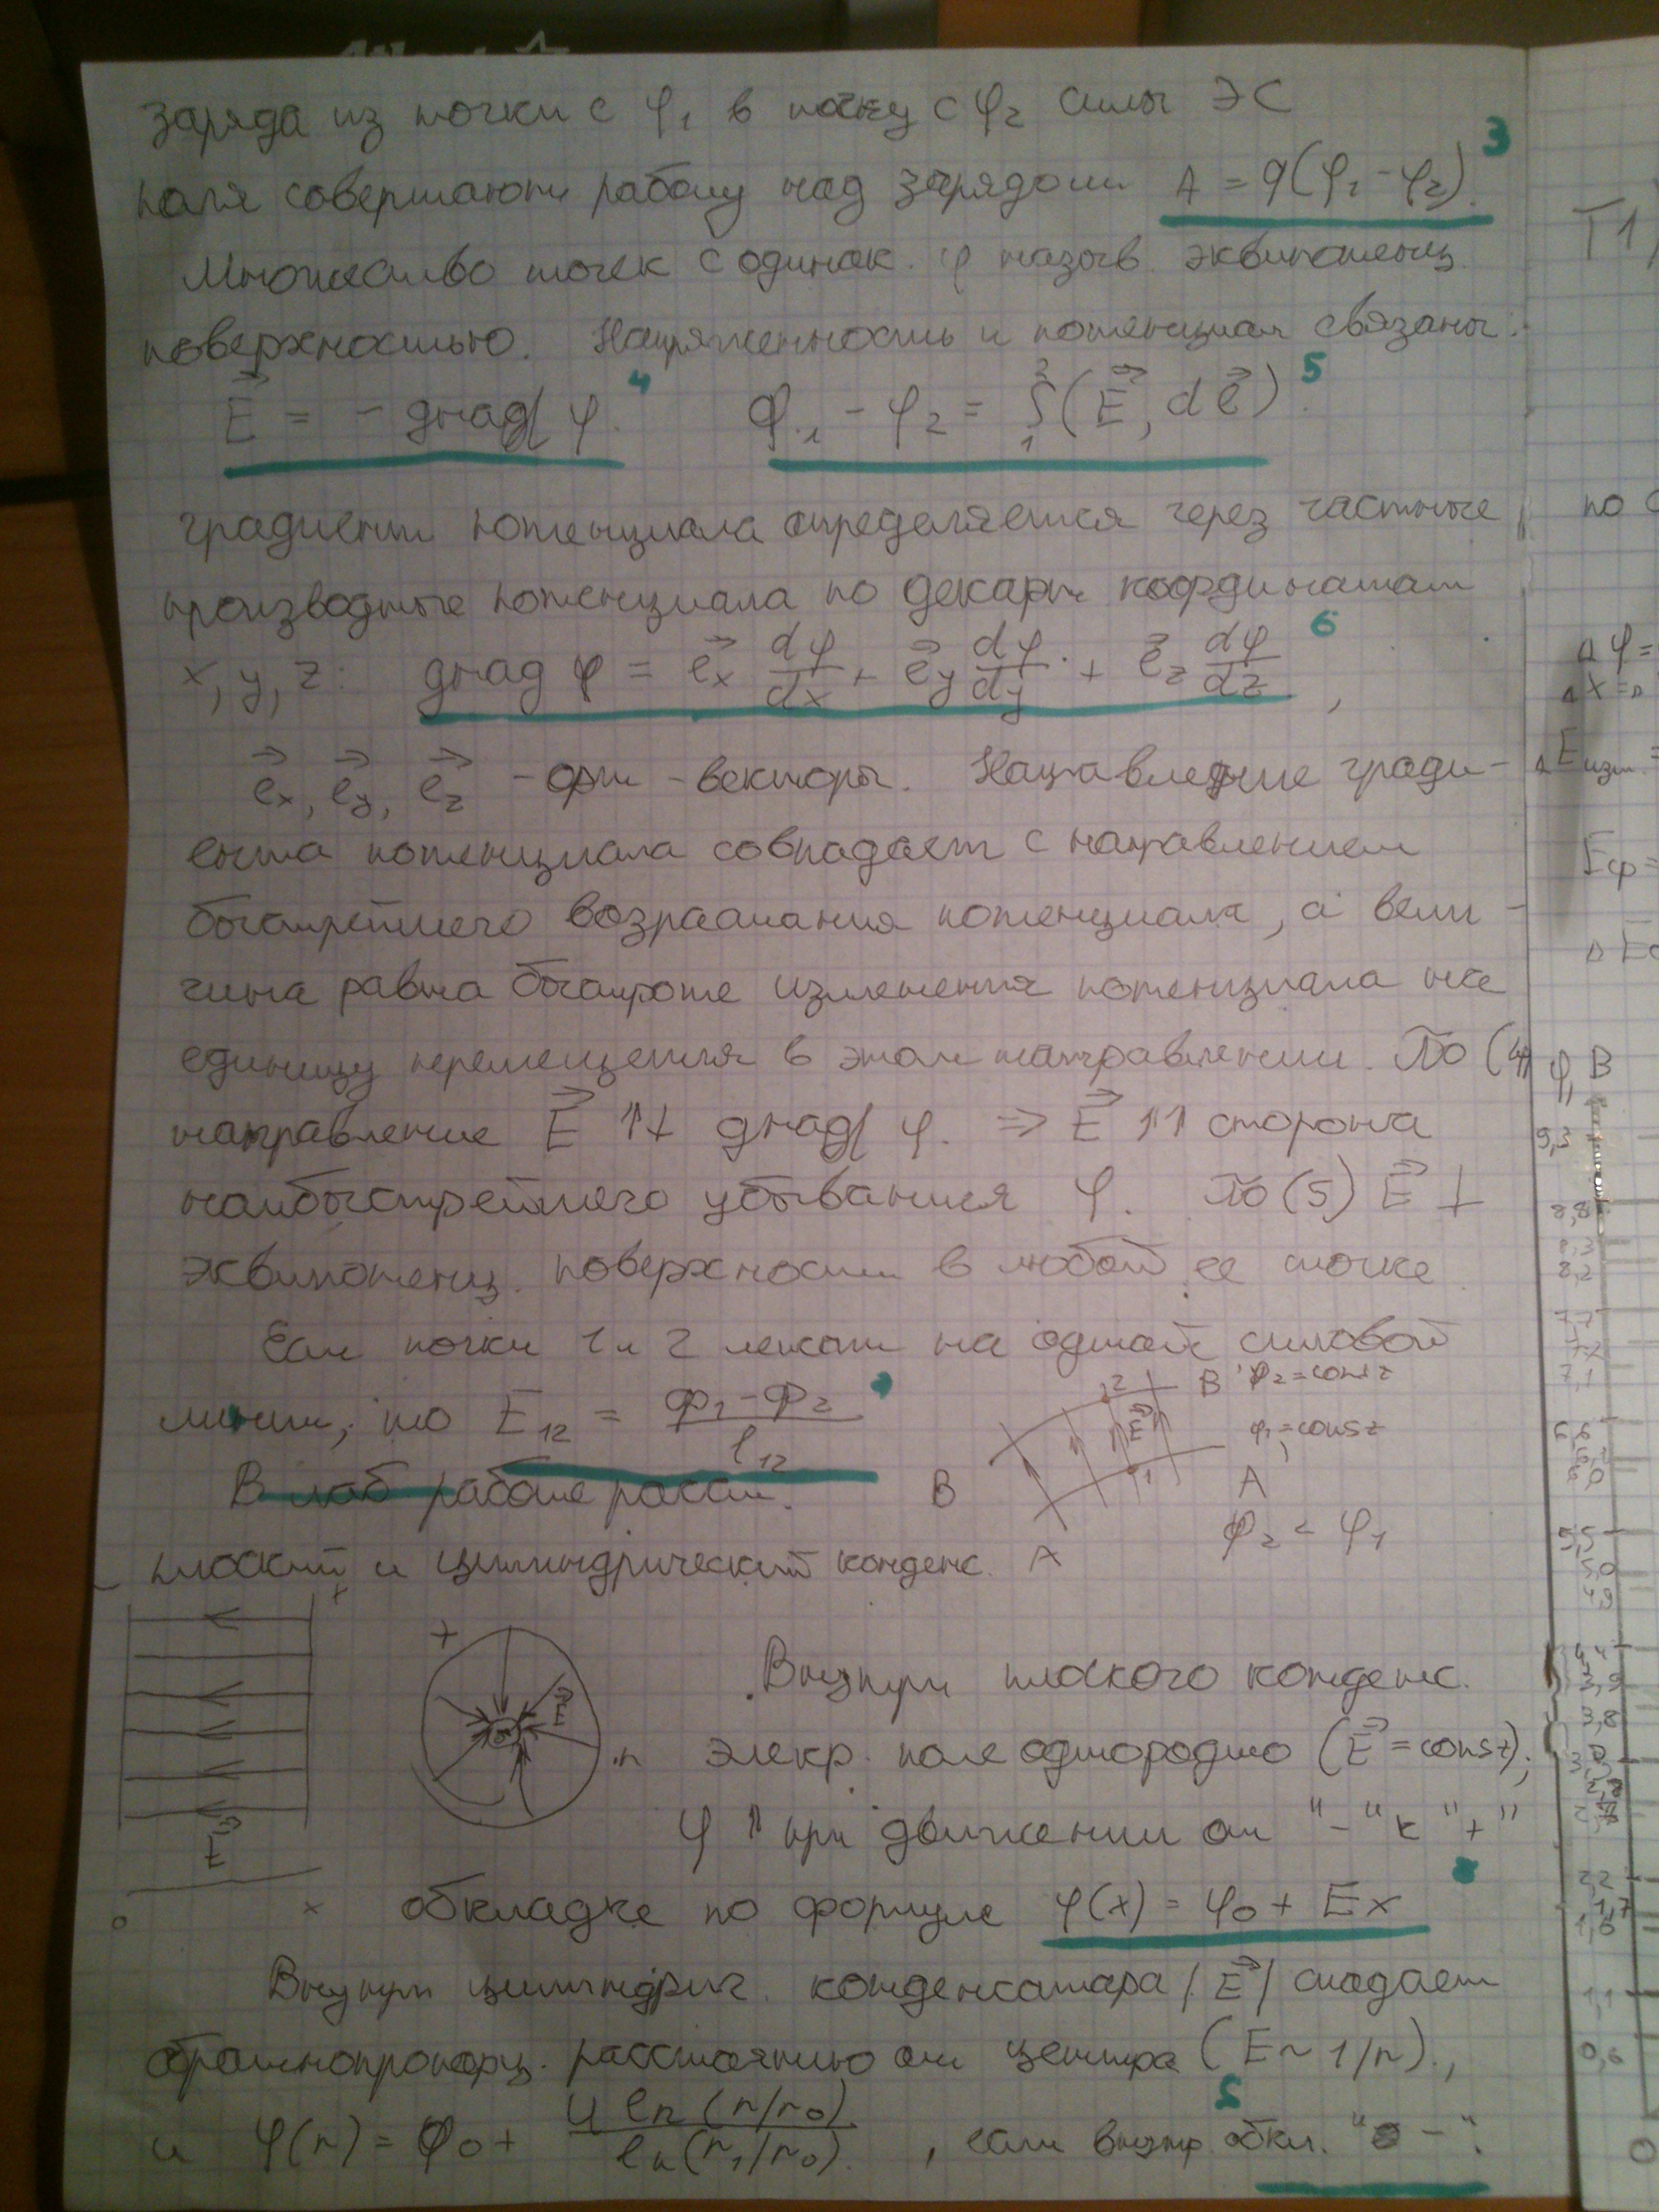 заряда из точки с φ₁ в точку с φ₂ силы ЭС
поля совершают работу над зарядом A = q(φ₁ - φ₂). 3
Множество точек с одинак. φ назыв. эквипотенц.
поверхностью. Напряженность и потенциал связаны:
E⃗ = - grad φ. 4 φ₁ - φ₂ = ₁∫²(E⃗, dl⃗). 5
градиент потенциала определяется через частные
производные потенциала по декарт. координатам
x, y, z: grad φ = e⃗x dφ/dx + e⃗y dφ/dy + e⃗z dφ/dz, 6
e⃗x, e⃗y, e⃗z - орт-векторы. Направление гради-
ента потенциала совпадает с направлением
быстрейшего возрастания потенциала, а вели-
чина равна быстроте изменения потенциала на
единицу перемещения в этом направлении. По (4)
направление E⃗ ↑↓ grad φ. => E⃗ ↑↑ сторона
наибыстрейшего убывания φ. По (5) E⃗ ⊥
эквипотенц. поверхности в любой ее точке
Если точки 1 и 2 лежат на одной силовой
линии, то E₁₂ = (φ₁ - φ₂)/l₁₂
2 B φ₂ = const
E⃗ φ₁ = const
1 B A
A φ₂ < φ₁
В лаб работе рассм.
плоский и цилиндрический конденс.
- +
E⃗
0 x
+ E⃗ r
Внутри плоского конденс.
элекр. поле однородно (E⃗ = const);
φ ↑ при движении от "-" к "+"
обкладке по формуле φ(x) = φ₀ + Ex 8
Внутри цилиндрич. конденсатора |E⃗| спадает
обратнопропорц. расстоянию от центра (E ~ 1/r).,
и φ(r) = φ₀ + U ln(r/r₀)/ln(r₁/r₀), если внутр. обкл. "-".
T1
по
Δφ =
Δx =
Eср =
φ, В
9,3
8,8
8,3
8,2
7,7
7,2
7,1
6,6
6,0
5,5
5,0
4,9
4,4
3,9
3,8
2,2
1,7
1,1
0,6
0